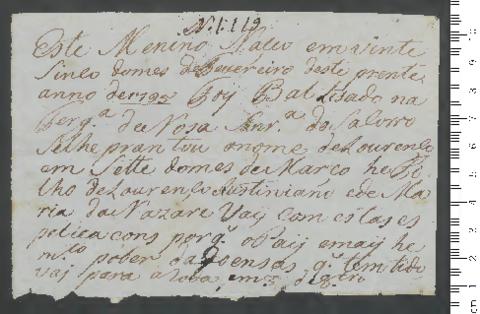 N. 1:119
Este Menino Naseo em vinte
sinco do mes de Fevereiro deste prente
anno de 1795 Foy Baltisado na
Ferg.ª de Nosa Snr.ª do Socorro
Selhe pran tou o nome de Lourenço
em Sette do mes de Marco he Fi
lho de Lourenço Justiniano e de Ma
ria da Nazare Vay Com estas es
plica cons porq. o Paij e maij he
m.to pober da doensas q. tem tido
vaj para a Roda em